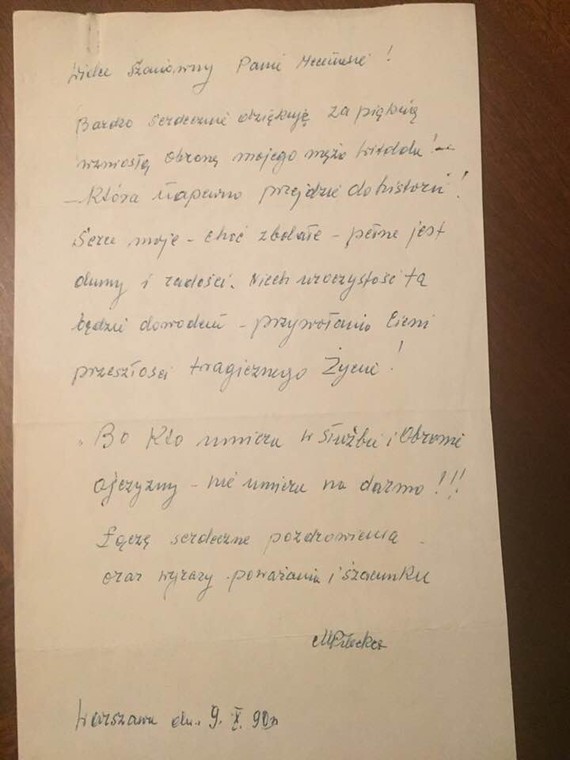 Wielce Szanowny Panie Mecenasie!
Bardzo serdecznie dziękuję za piękną
wzniosłą obronę mojego męża Witolda! –
– Która napewno przejdzie do historii!
Serce moje – choć zbolałe – pełne jest
dumy i radości. Niech uroczystość ta
będzie dowodem – przywołania Cieni
przeszłości tragicznego Życia!
Bo Kto umiera w Służbie i Obronie
ojczyzny – nie umiera na darmo!!!
Łączę serdeczne pozdrowienia
oraz wyrazy poważania i szacunku
MPilecka
Warszawa dn. 9. X. 90r